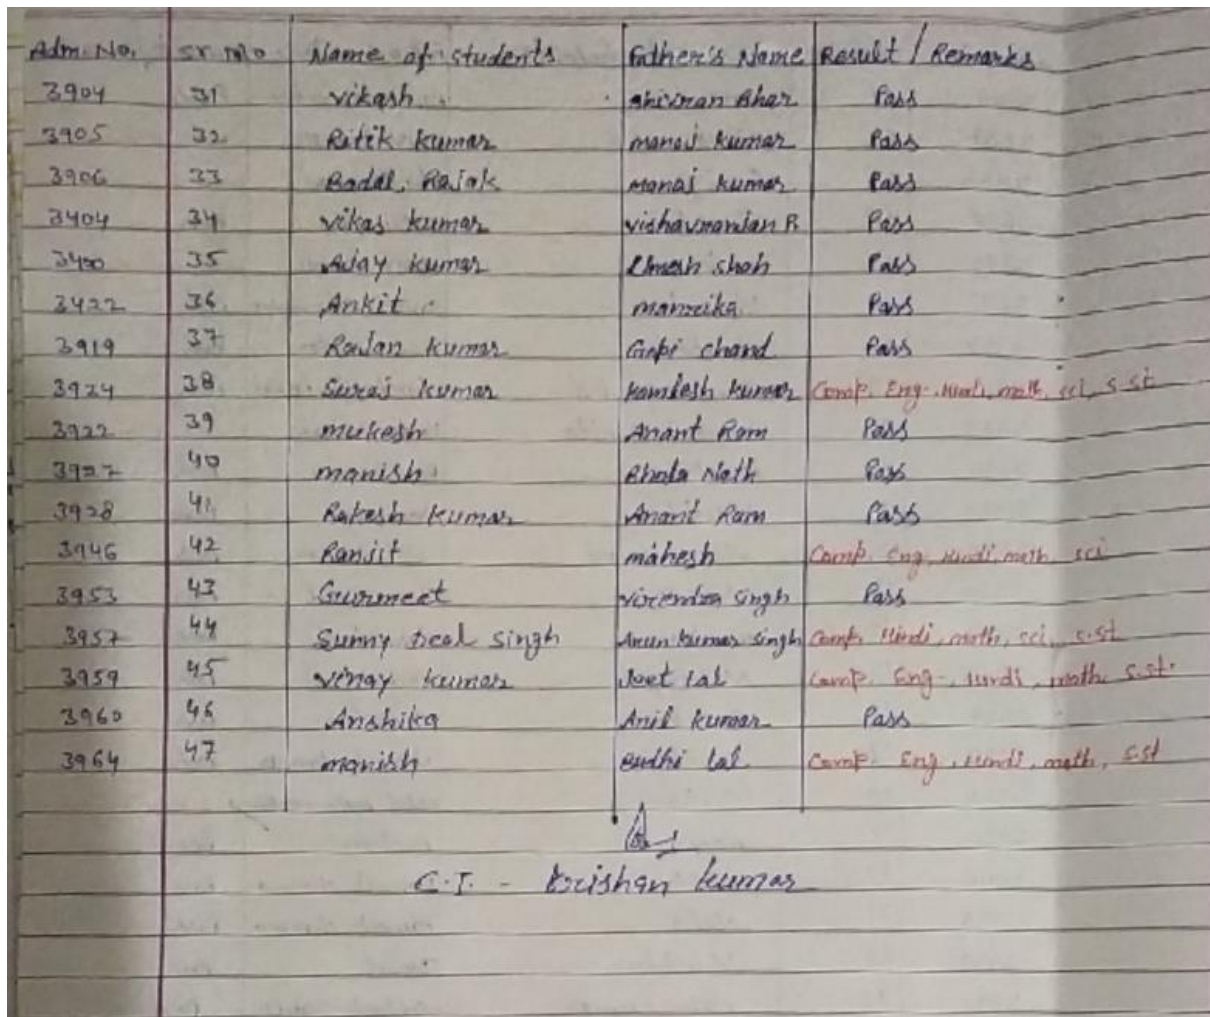 Adm. No. Sr. No Name of students Father's Name Result / Remarks
3904 31 vikash Bhar Pass
3905 32 Ritik kumar manoj kumar Pass
3906 33 Badal Rajak Manoj kumar Pass
3404 34 vikas kumar Pass
35 Ajay kumar Umesh shah Pass
3422 36 Ankit Pass
3919 37 Rajan kumar Gopi chand Pass
3924 38 Suraj kumar kamlesh kumar Comp. Eng., Hindi, math, sci, s.st
3922 39 mukesh Anant Ram Pass
3927 40 manish Bhola Nath Pass
3928 41 Rakesh kumar Anant Ram Pass
3946 42 Ranjit mahesh Comp. Eng, Hindi, math, sci
3953 43 Gurmeet virendra singh Pass
3957 44 Sunny Deol Singh Arun kumar singh Comp. Hindi, math, sci, s.st
3959 45 vinay kumar Jeet lal Comp. Eng., Hindi, math, s.st.
3960 46 Anshika Anil kumar Pass
3964 47 manish Budhi lal Comp. Eng, Hindi, math, s.st
C.I. - krishan kumar